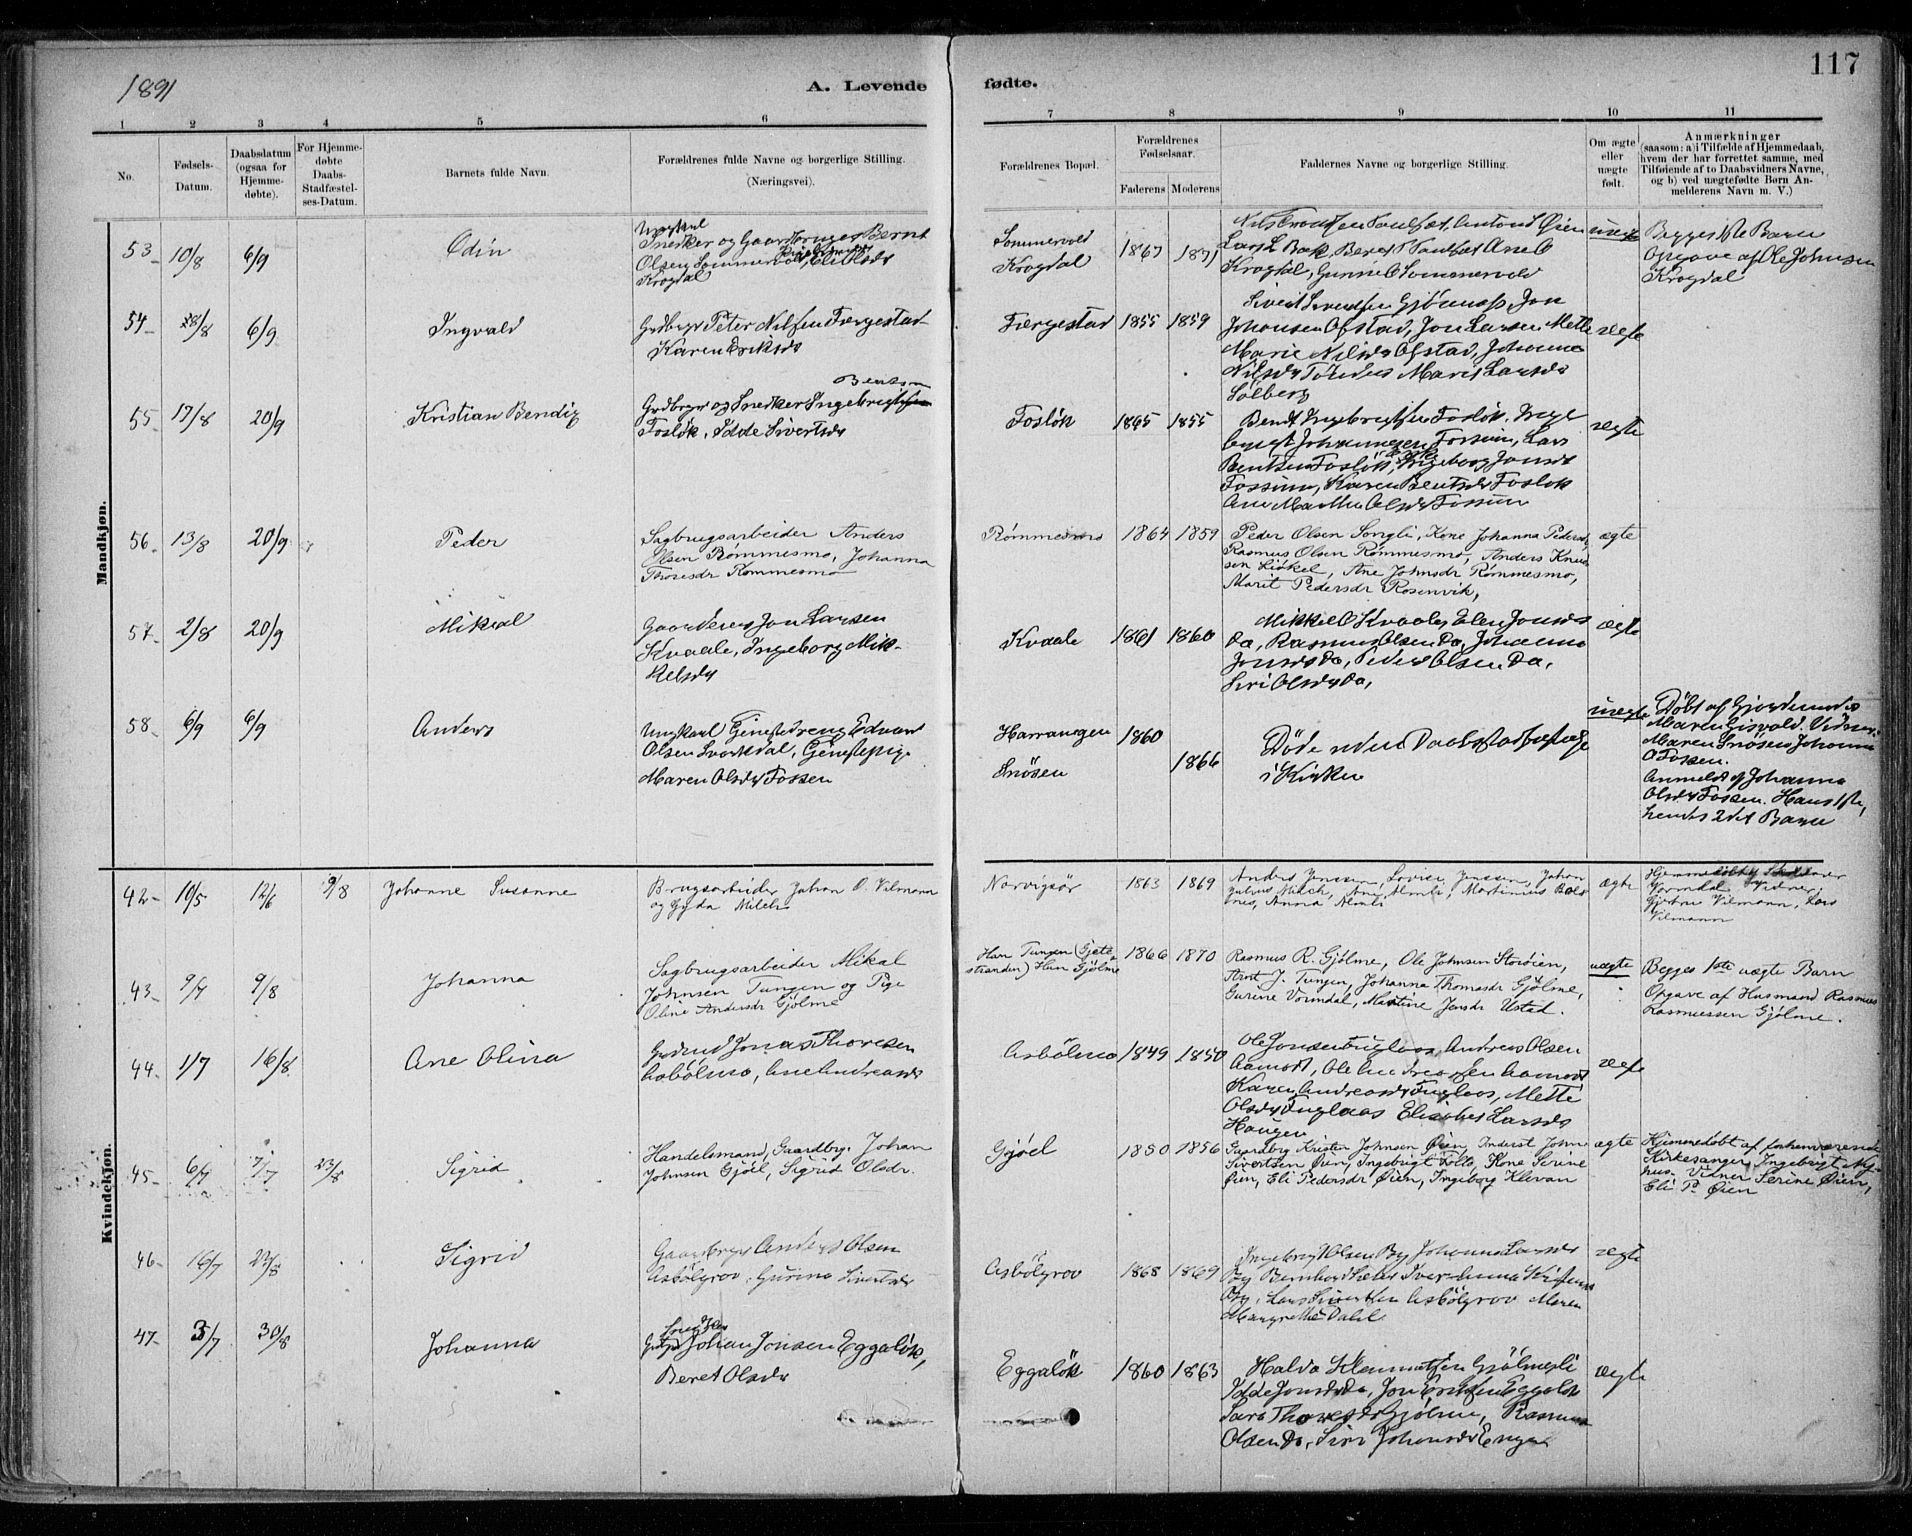 1891
A. Levende
fødte.
117
1
2
3
4
5
6
7
8
9
10
11
No.
Fødsels-
Datum.
Daabsdatum
(ogsaa for
Hjemme-
døbte).
For Hjemme-
døbte
Daabs-
Stadfæstel-
ses-Datum.
Barnets fulde Navn.
Forældrenes fulde Navne og borgerlige Stilling.
(Næringsvei).
Forældrenes Bopæl.
Forældrenes
Fødselsaar.
Faderens
Moderens
Faddernes Navne og borgerlige Stilling.
Om ægte
eller
uægte
født.
Anmærkninger
(saasom: a) i Tilfælde af Hjemmedaab,
hvem der har forrettet samme, med
Tilføiende af to Daabsvidners Navne,
og b) ved uægtefødte Børn An-
melderens Navn m. V.)
Mandkjøn.
53
10/8
6/9
Odin
Ungkarl
Snedker og Gaardbruger Bernt
Olsen Sommervold,
Krogdal
Sommervold
Krogdal
1867
1871
Krogdal, Gunnel Sommervold
uægte
Begges 1ste Barn
Opgave af Ole Johnsen
Krogdal
54
28/8
6/9
Ingvald
Grdbrgr Peter Nilsen Færgestad
Karen Eriksdr
Færgestad
1855
1859
Sivert Sivertsen Gjønnes, Jon
Johansen Ofstad, Jon Larsen Mette
Marie Nilsdr Ofstad, Johanna
Nilsdr Marit Larsdr
Solberg
ægte
55
17/8
20/9
Kristian Bendix
Bentsen
Grdbrgr og Snedker Ingebrigt
Fosløk, Idde Sivertsdr
Fosløk
1865
1855
Bendt Ingebrigtsen Fosløk, Inge
brigt Johannesen Fossum, Lars
Bentsen Fosløk, Ingeborg Jonsdr
Fossum, Karen Bentsdr Fosløk
Ane Marthe Olsdr Fossum
ægte
56
13/8
20/9
Peder
Sagbrugsarbeider Anders
Olsen Rømmesmo, Johanna
Thoresdr Rømmesmo
Rømmesmo
1864
1859
Peder Olsen Songli, Kone Johanna Pedersdr,
Rasmus Olsen Rømmesmo, Anders Knud
sen Liøkel, Ane Johnsdr Rømmesmo,
Marit Pedersdr Rosenvik,
ægte
57
2/8
20/9
Mikal
Gaardeier Jon Larsen
Kvaale, Ingeborg Mik-
kelsdr
Kvaale
1861
1860
Mikkel O Kvaale, Elen Jonsdr
Do, Rasmus Olsen Do, Johanna
Jonsdr Do, Peder Olsen Do,
Siri Olsdr Do,
ægte
58
6/9
6/9
Anders
Ungkarl Gjenstedreng Edvard
Olsen Svorkdal, Gjenstepige
Maren Olsdr Fossen
Harrangen
Snøsen
1860
1866
Døde uden Daabsstadfæstelse
i Kirken
uægte
Døbt af Gjordemoder
Maren Eisvold. Vidner:
Maren Snøsen, Johanna
O Fossen.
Anmeldt af Johanna
Olsdr Fossen. Hans 1ste,
hendes 2det Barn
Kvindekjøn.
42
10/5
12/6
9/8
Johanne Susanne
Brugsarbeider Johan O. Vilmann
og Gyda Milch
Norvigsør
1863
1869
Anders Jenssen, Lovise Jenssen, Johan
Julius Milch, Ane Almli, Martinius Bols
nes, Anna Almli
ægte
Hjemmedøbt af
Vormdal Vidner:
Gjertine Vilmann, Lars
Vilmann
43
9/7
9/8
Johanna
Sagbrugsarbeider Mikal
Johnsen Tungen og Pige
Oline Andersdr Gjølme
Han Tungen (Gjete-
stranden) Hun Gjølme
1866
1870
Rasmus R. Gjølme, Ole Johnsen Storøien,
Arnt J. Tungen, Johanna Thomasdr Gjølme,
Gurine Vormdal, Martine Jensdr Ustad.
uægte
Begges 1ste uægte Barn
Opgave af Husmand Rasmus
Rasmussen Gjølme.
44
1/7
16/8
Ane Olina
Grdmd Jonas Thoresen
Asbølmo, Ane Andreasdr
Asbølmo
1849
1850
Ole Jonsen Fuglaas, Andreas Olsen
Aamodt, Ole Andreassen Aamodt
Karen Andreasdr Fuglaas, Mette
Olsdr Fuglaas Elisabet Larsdr
Haugen
ægte
45
6/7
7/7
23/8
Sigrid
Handelsmand, Gaardbrg. Johan
Johnsen Gjöl, Sigrid Olsdr.
Gjøel
1850
1856
Gaardbrg Kristen Johnsen Øien, Inderst John
Sivertsen Øien, Ingebrigt Tolle, Kone Serine
Øien, Eli Pedersdr Øien, Ingeborg Klevan
ægte
Hjemmedøbt af forhenværende
Kirkesanger Ingebrigt Ny-
hus. Vidner Serine Øien,
Eli P. Øien
46
16/7
23/8
Sigrid
Gaardbrgr Anders Olsen
Asbølgrov, Gurina Sivertsdr
Asbølgrov
1868
1869
Ingebrigt Olsen By, Johanna Larsdr
By, Lars Sivertsen Asbølgrov Maren
Margrethe Dahl
ægte
47
3/7
30/8
Johanna
Snedker
Johan Jonsen Eggaløk,
Beret Olsdr
Eggaløk
1860
1863
Halvor Klemmetsen Gjølmesli
Idde Jonsdr Do, Jon Eriksen Eggaløk
Sara Thoresdr Gjølme, Rasmus
Olsen Do, Siri Johansdr Enger
ægte